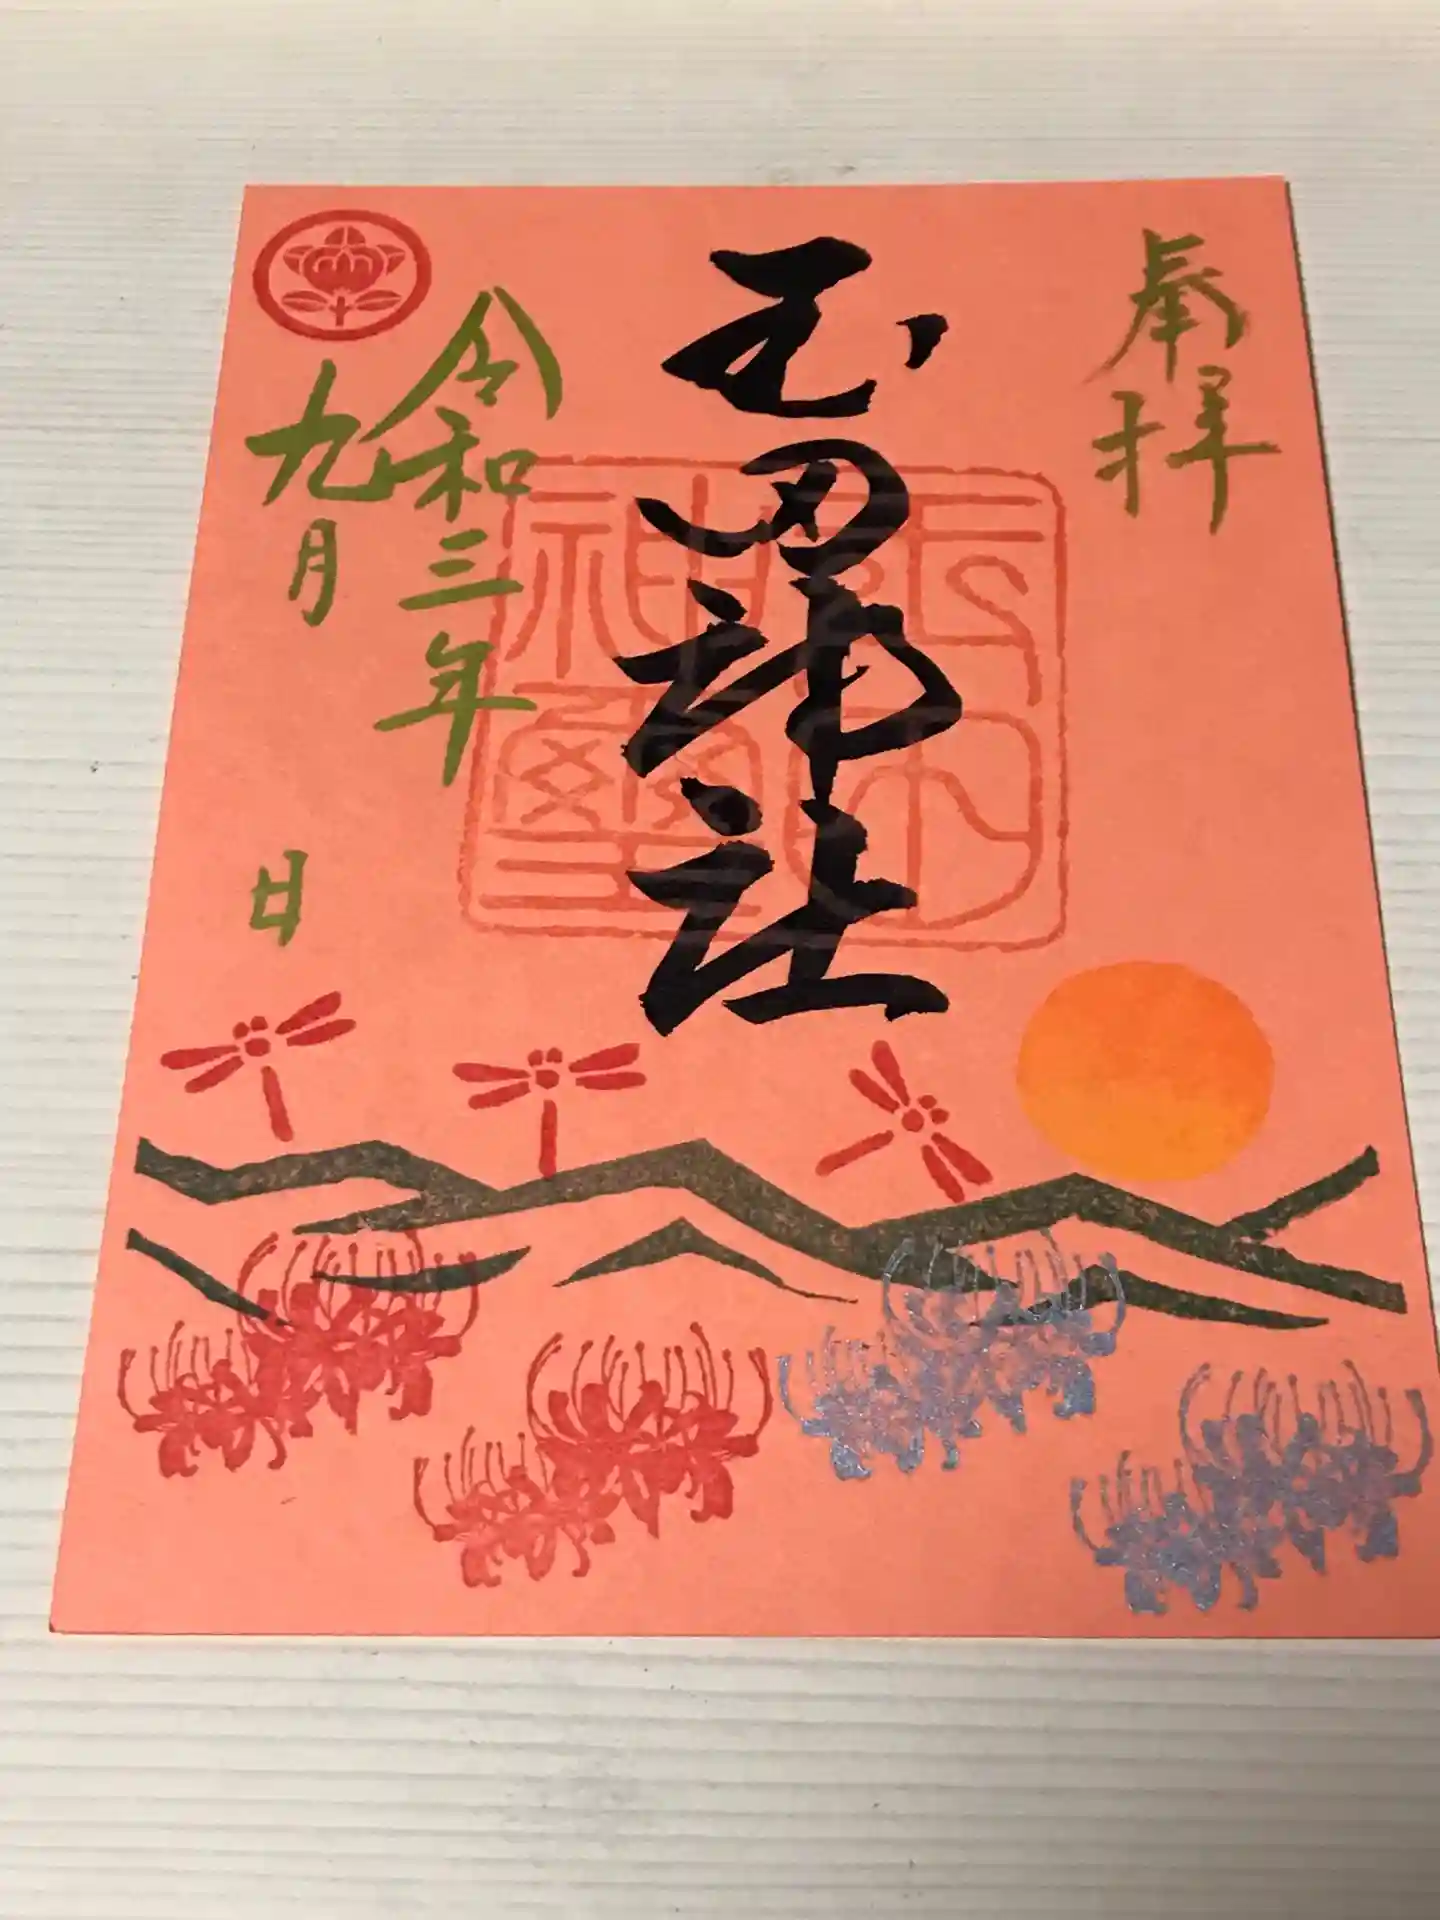 奉拝
玉田神社
神璽
令和三年
九月 日